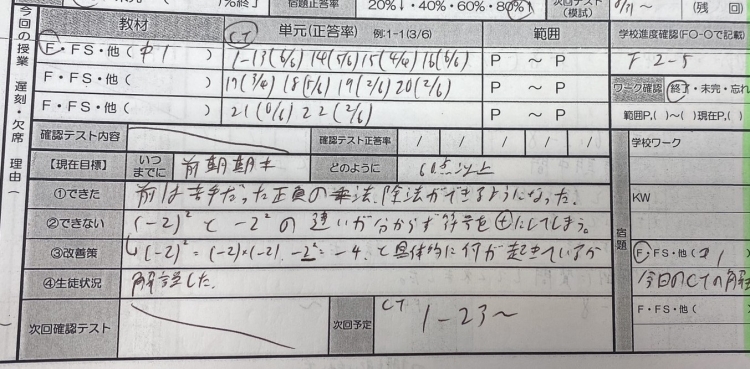 %終了
宿題正答率 20%↓・40%・60%・80%↑
次回テスト(模試)
~ (残 回
今回の授業 遅刻・欠席 理由( )
教材 単元(正答率) 例:1-1(3/6) 範囲
学校進度確認(FO-Oで記載)
CT
F・FS・他(中1 ) 1-13(6/6) 14(5/6) 15(4/6) 16(6/6) P ~ P
F 2-5
F・FS・他( ) 17(3/6) 18(5/6) 19(2/6) 20(2/6) P ~ P
ワーク確認 終了・未完・忘れ
F・FS・他( ) 21(0/6) 22(2/6) P ~ P
範囲P.( )~( )現在P.(
確認テスト内容 確認テスト正答率 / / / / /
学校ワーク
【現在目標】 いつまでに 前期期末 どのように 60点以上
①できた 前は苦手だった正負の乗法、除法ができるようになった。
KW
②できない (-2)² と -2² の違いが分からず符号を⊕にしてしまう。
宿題
③改善策 (-2)²=(-2)×(-2). -2²=-4. と具体的に何が起きているか
F・FS・他(
④生徒状況 解説した.
今日のCTの解
次回確認テスト 次回予定 CT 1-23~
F・FS・他(